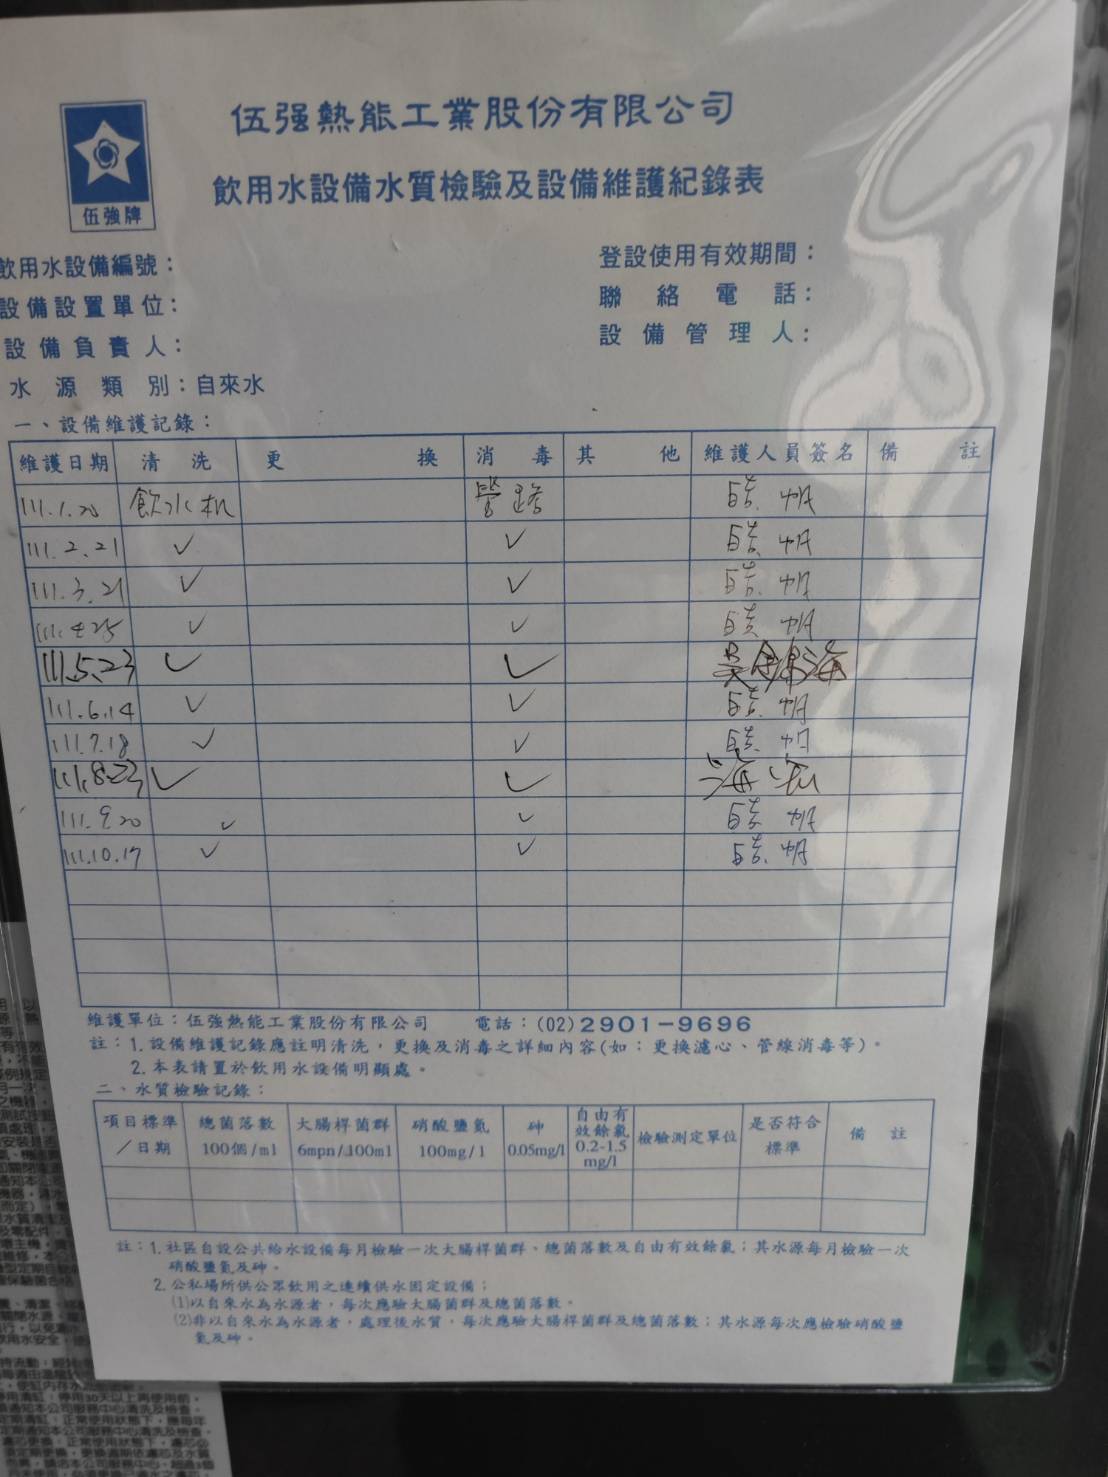 伍强熱能工業股份有限公司
飲用水設備水質檢驗及設備維護紀錄表
伍強牌
飲用水設備編號：
登設使用有效期間：
設備設置單位：
聯絡電話：
設備負責人：
設備管理人：
水源類別：自來水
一、設備維護記錄：
維護日期 清洗 更換 消毒 其他 維護人員簽名 備註
111.1.20 飲水机 管路
111.2.21 ✓ ✓
111.3.21 ✓ ✓
111.4.25 ✓ ✓
111.5.23 ✓ ✓
111.6.14 ✓ ✓
111.7.18 ✓ ✓
111.8.23 ✓ ✓
111.9.20 ✓ ✓
111.10.17 ✓ ✓
維護單位：伍強熱能工業股份有限公司 電話：(02)2901-9696
註：1.設備維護記錄應註明清洗，更換及消毒之詳細內容(如：更換濾心、管線消毒等)。
2.本表請置於飲用水設備明顯處。
二、水質檢驗記錄：
項目標準／日期 總菌落數 100個/ml 大腸桿菌群 6mpn/100ml 硝酸鹽氮 100mg/l 砷 0.05mg/l 自由有效餘氯 0.2-1.5 mg/l 檢驗測定單位 是否符合標準 備註
註：1.社區自設公共給水設備每月檢驗一次大腸桿菌群、總菌落數及自由有效餘氯；其水源每月檢驗一次
硝酸鹽氮及砷。
2.公私場所供公眾飲用之連續供水固定設備；
(1)以自來水為水源者，每次應驗大腸菌群及總菌落數。
(2)非以自來水為水源者，處理後水質，每次應驗大腸桿菌群及總菌落數；其水源每次應檢驗硝酸鹽
氮及砷。